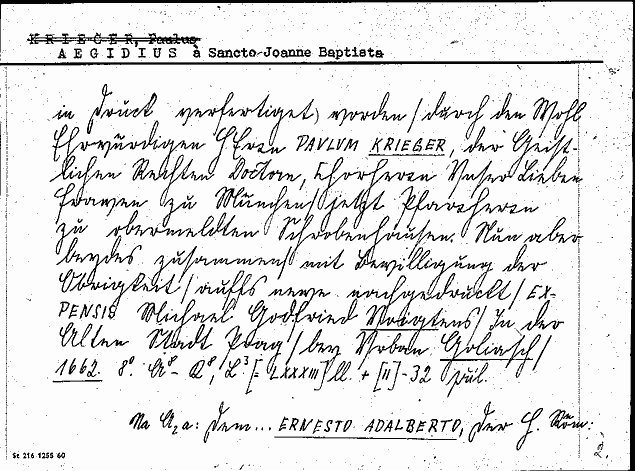 K R I E G E R, Paulus
A E G I D I U S à Sancto Joanne Baptista
in Druck verfertiget) worden / durch den Wohl
Ehrwürdigen HEren PAVLVM KRIEGER, der Geist-
lichen Rechten Doctorn, Chorherrn Unser Lieben
Frawen zu München / jetzt Pfarrherrn
zu obermeldten Schrobenhausen. Nun aber
beydes zusammen mit Bewilligung der
Obrigkeit / auffs newe nachgedruckt / EX-
PENSIS Michael Godfried Voigtens / In der
Alten Stadt Prag / bey Urban Goliasch /
1662. 8°. A⁸ - Q⁸, L³ [= LXXXIII] ll. + [II] - 32 pul.
Na A₂a: Dem... ERNESTO ADALBERTO, Der H. Röm:
St 216 1255 60